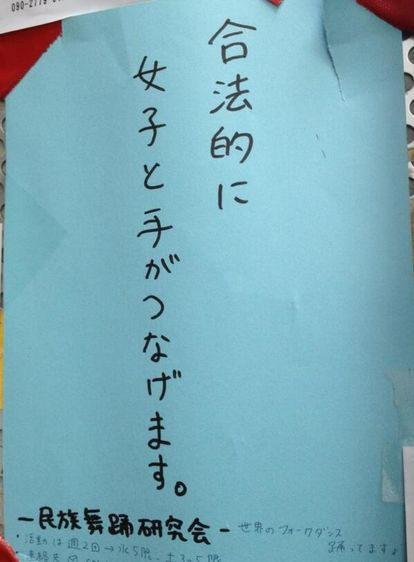 合法的に
女子と手がつなげます。
ー民族舞踊研究会ー
世界のフォークダンス
踊ってます♪
・活動は週2回→水5限、